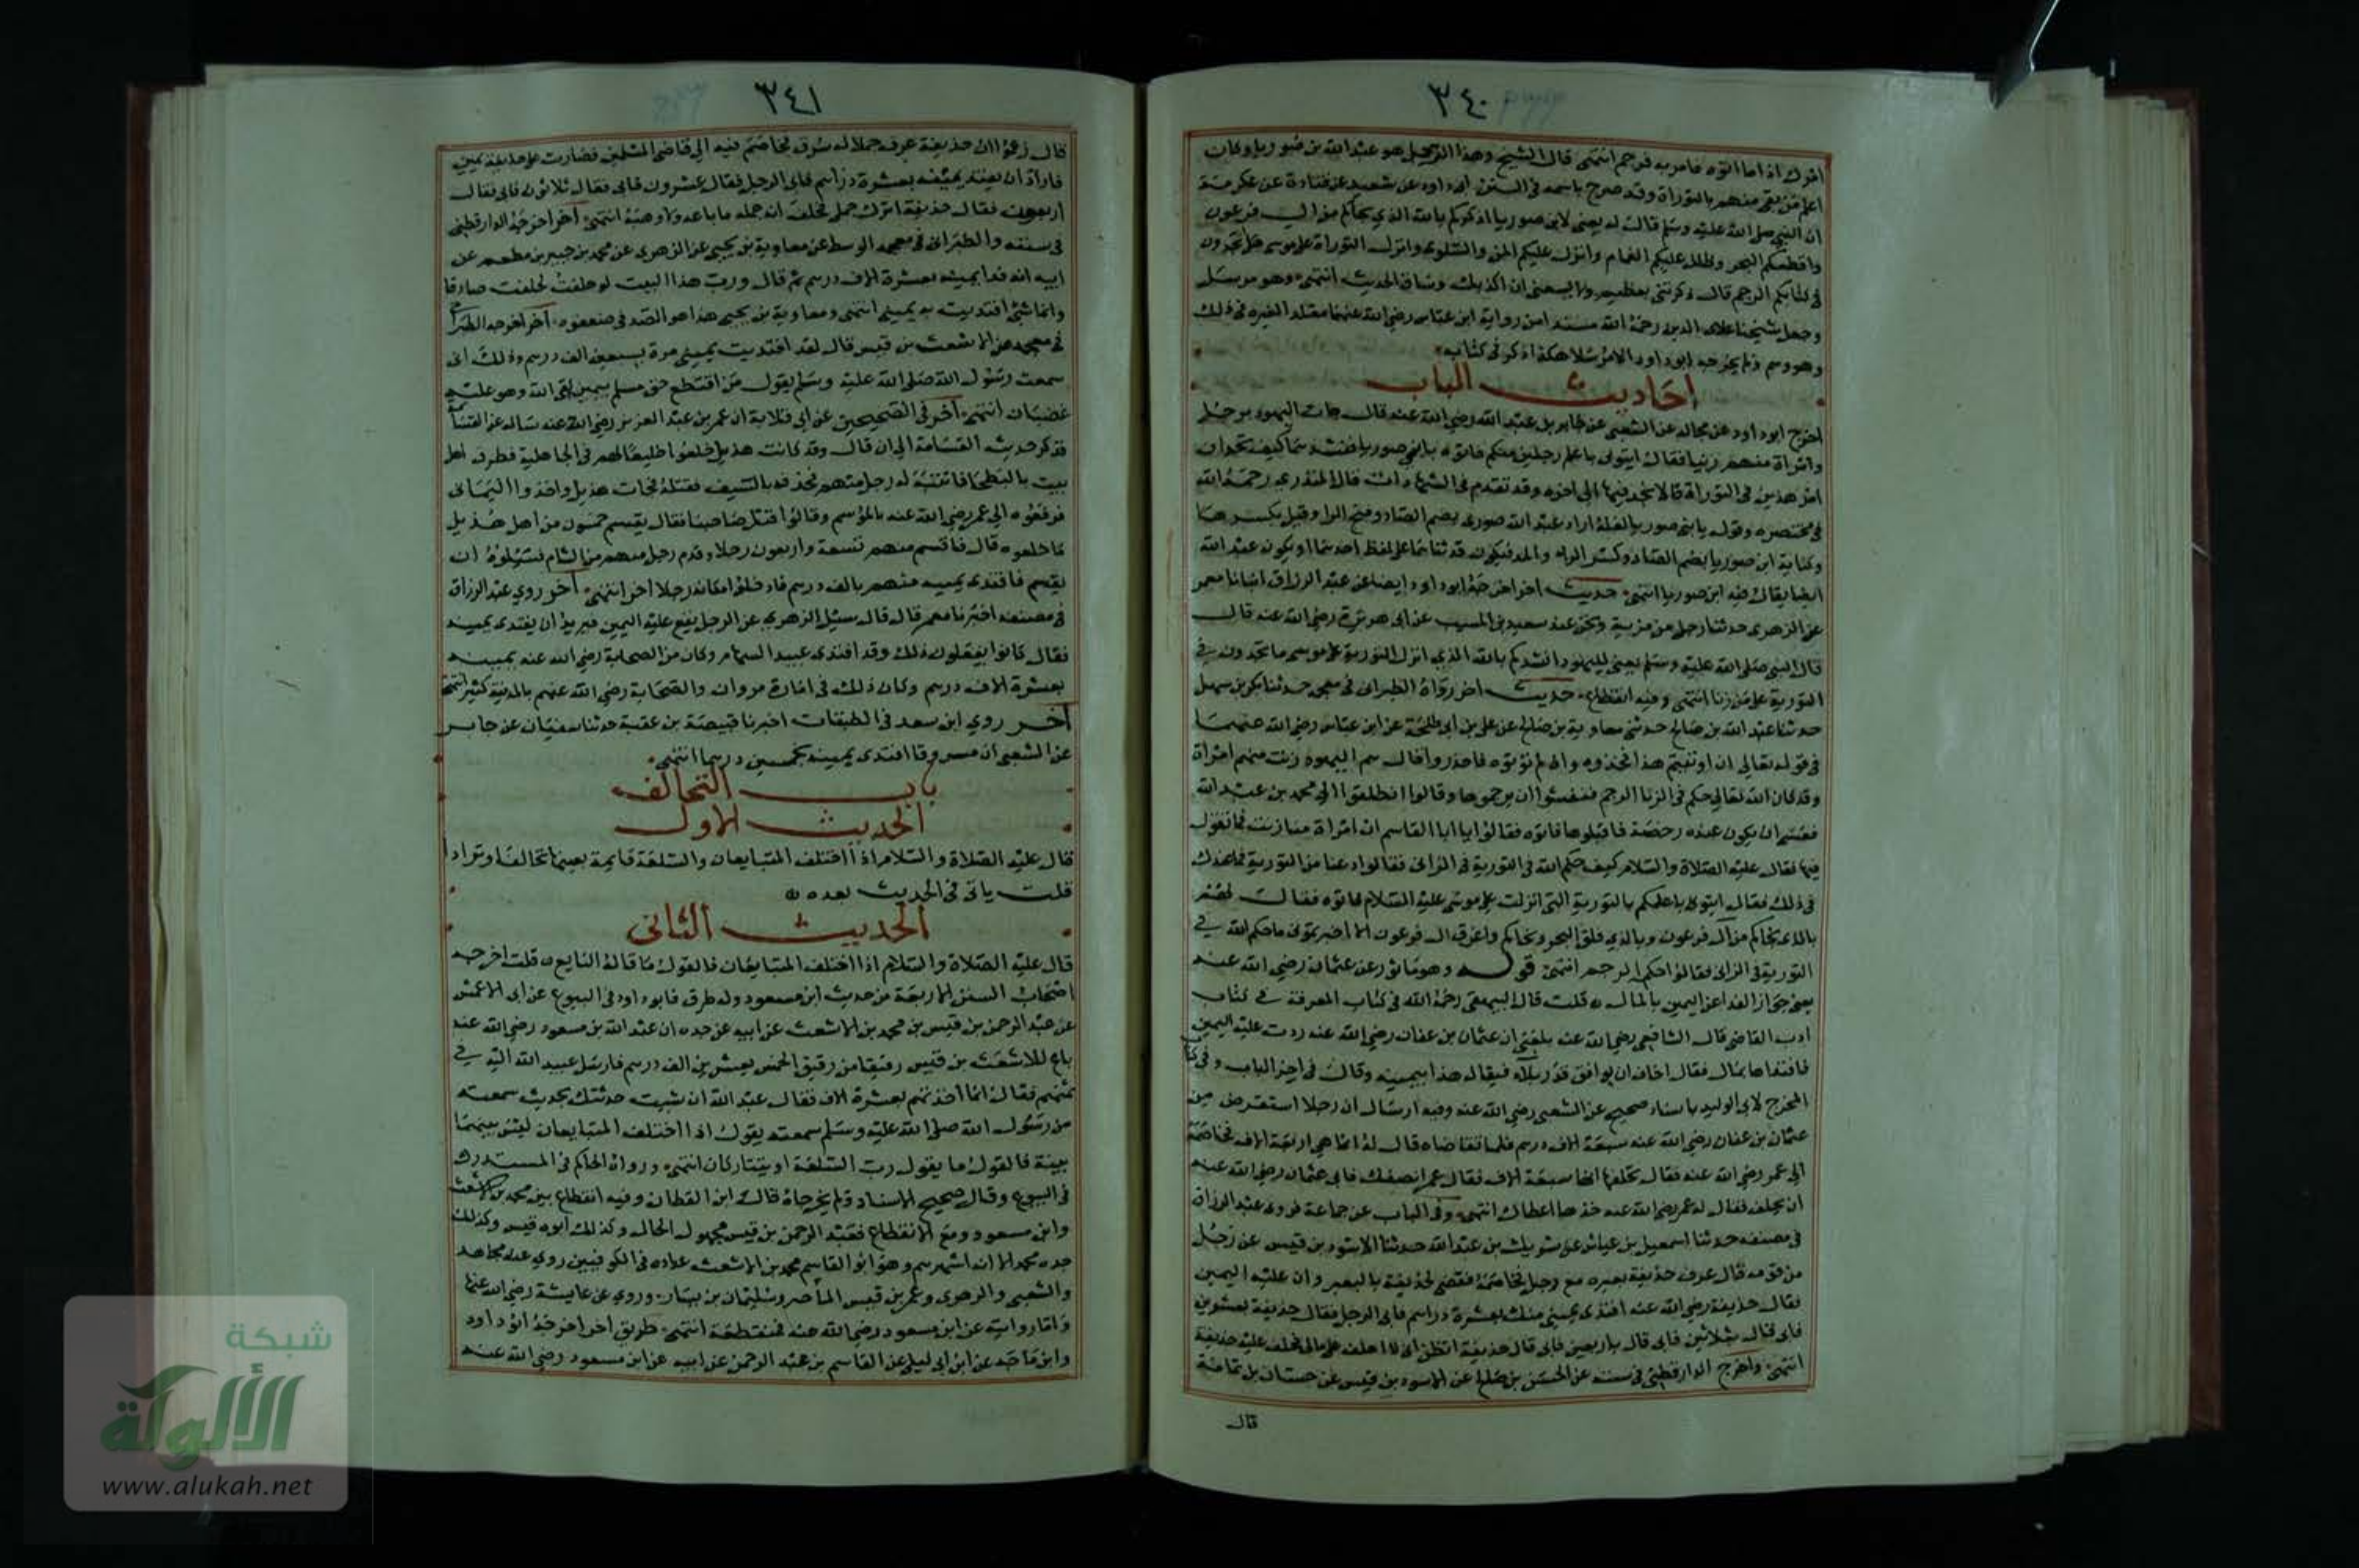 ٣٤٠
امرك اذ اماتوه فامر به فرجم انتهى قال الشيخ وهذا الرجل هو عبد الله بن صوريا وكان
اعلم من بقي منهم بالتوراة وقد صرح باسمه في السنن ابو داود عن سعيد عن قتادة عن عكرمة
ان النبي صلى الله عليه وسلم قال له يعني لابن صوريا اذكركم بالله الذي نجاكم من ال فرعون
واقطعكم البحر وظلل عليكم الغمام وانزل عليكم المن والسلوى وانزل التوراة على موسى هل تجدون
في كتابكم الرجم قال ذكرتني بعظيم ولا يسعني ان اكذبك وساق الحديث انتهى وهو مرسل
وجعل شيخنا علاء الدين رحمه الله مسندا من رواية ابن عباس رضي الله عنهما مقلدا لغيره في ذلك
وهو وهم ولم يخرجه ابو داود الا مرسلا هكذا ذكر في كتابه
احاديث الباب
اخرج ابو داود عن مجالد عن الشعبي عن جابر بن عبد الله رضي الله عنه قال جات اليهود برجل
وامراة منهم زنيا فقال ايتوني باعلم رجلين منكم فاتوه بابني صوريا فنشدهما كيف تجدان
امر هذين في التوراة قالا نجد فيها الى اخره وقد تقدم في الشهادات قال المنذري رحمه الله
في مختصره وقوله بابني صوريا لعله اراد عبد الله صوري بضم الصاد وفتح الرا وقيل بكسرها
وكنانة ابن صوريا بضم الصاد وكسر الراء والمد فيكون قد ثناهما على لفظ احدهما او يكون عبد الله
ايضا يقال فيه ابن صوريا انتهى حديث اخر اخرجه ابو داود ايضا عن عبد الرزاق انبانا معمر
عن الزهري حدثنا رجل من مزينة ونحن عند سعيد بن المسيب عن ابي هريرة رضي الله عنه قال
قال النبي صلى الله عليه وسلم يعني لليهود انشدكم بالله الذي انزل التورية على موسى ما تجدون في
التورية على من زنا انتهى وفيه انقطاع حديث اخر رواه الطبراني في معجمه حدثنا بكر بن سهل
حدثنا عبد الله بن صالح حدثني معاوية بن صالح عن علي بن ابي طلحة عن ابن عباس رضي الله عنهما
في قوله تعالى ان اوتيتم هذا فخذوه وان لم تؤتوه فاحذروا قال هم اليهود زنت منهم امراة
وقد كان الله تعالى حكم في الزنا الرجم فنفسوا ان يرجموها وقالوا انطلقوا الى محمد بن عبد الله
فعسى ان يكون عنده رخصة فاقبلوها فاتوه فقالوا يا ابا القاسم ان امراة منا زنت فما تقول
فيها فقال عليه الصلاة والسلام كيف حكم الله في التورية في الزاني فقالوا دعنا من التورية فما عندك
في ذلك فقال ايتوني باعلمكم بالتورية التي انزلت على موسى عليه السلام فاتوه فقال لهم
بالذي نجاكم من آل فرعون وبالذي فلق البحر ونجاكم واغرق ال فرعون الا اخبرتموني ما حكم الله في
التورية في الزاني فقالوا حكم الرجم انتهى قوله وهو ماثور عن عثمان رضي الله عنه
يعني جواز الفدا عن اليمين بالمال قلت قال البيهقي رحمه الله في كتاب المعرفة في كتاب
ادب القاضي قال الشافعي رضي الله عنه بلغني ان عثمان بن عفان رضي الله عنه ردت عليه اليمين
فافتداها بمال فقال اخاف ان يوافق قدر بلاء فيقال هذا بيمينه وقال في اخر الباب وفي كتاب
المخرج لابي الوليد باسناد صحيح عن الشعبي رضي الله عنه وفيه ارسال ان رجلا استقرض من
عثمان بن عفان رضي الله عنه سبعة الاف درهم فلما تقاضاه قال له انما هي اربعة الاف فخاصمه
الى عمر رضي الله عنه فقال تحلف انها سبعة الاف فقال عمر انصفك فابى عثمان رضي الله عنه
ان يحلف فقال له عمر رضي الله عنه خذ ما اعطاك انتهى وفي الباب عن جماعة فروى عبد الرزاق
في مصنفه حدثنا اسمعيل بن عياش عن شريك بن عبد الله حدثنا الاسود بن قيس عن رجل
من قومه قال عرف حذيفة بعيره مع رجل فخاصمه فقضي لحذيفة بالبعير وان عليه اليمين
فقال حذيفة رضي الله عنه افتدي يميني منك بعشرة دراهم فابى الرجل فقال حذيفة بعشرين
فابى قال بثلاثين فابى قال باربعين فابى قال حذيفة اتظن اني لا احلف على مالي فحلف عليه حذيفة
انتهى واخرج الدارقطني في سننه عن الحسن بن صالح عن الاسود بن قيس عن حسان بن ثمامة
قال
٣٤١
قال زعموا ان حذيفة عرف جملا له سرق فخاصم فيه الى قاضي المسلمين فصارت على حذيفة يمين
فاراد ان يفتدي يمينه بعشرة دراهم فابى الرجل فقال عشرون فابى فقال ثلاثون فابى فقال
اربعون فقال حذيفة اترك جملي فحلف انه جمله ما باعه ولا وهبه انتهى آخر اخرجه الدارقطني
في سننه والطبراني في معجمه الوسط عن معاوية بن يحيى عن الزهري عن محمد بن جبير بن مطعم عن
ابيه انه فدا يمينه بعشرة الاف درهم ثم قال ورب هذا البيت لو حلفت لحلفت صادقا
وانما شئ افتديت به يميني انتهى ومعاوية بن يحيى هذا هو الصدفي ضعفوه آخر اخرجه الطبراني
في معجمه عن الاشعث بن قيس قال لقد افتديت يميني مرة بسبعين الف درهم وذلك اني
سمعت رسول الله صلى الله عليه وسلم يقول من اقتطع حق مسلم بيمين لقي الله وهو عليه
غضبان انتهى آخر في الصحيحين عن ابي قلابة ان عمر بن عبد العزيز رضي الله عنه ساله عن القسامة
فذكر حديث القسامة الى ان قال وقد كانت هذيل خلعوا خليعا لهم في الجاهلية فطرق اهل
بيت بالبطحا فانتبه له رجل منهم فحذفه بالسيف فقتله فجات هذيل واخذوا اليماني
فرفعوه الى عمر رضي الله عنه بالموسم وقالوا قتل صاحبنا فقال يقسم خمسون من اهل هذيل
ما خلعوه قال فاقسم منهم تسعة واربعون رجلا وقدم رجل منهم من الشام فسئلوه ان
يقسم فافتدى يمينه منهم بالف درهم فادخلوا مكانه رجلا اخر انتهى آخر روي عبد الرزاق
في مصنفه اخبرنا معمر قال قال سئل الزهري عن الرجل يقع عليه اليمين فيريد ان يفتدي يمينه
فقال كانوا يفعلون ذلك وقد افتدى عبيد السهام وكان من الصحابة رضي الله عنه يمينه
بعشرة الاف درهم وكان ذلك في امارة مروان والصحابة رضي الله عنهم بالمدينة كثير انتهى
آخر روي ابن سعد في الطبقات اخبرنا قبيصة بن عقبة حدثنا سفيان عن جابر
عن الشعبي ان مسروقا افتدى يمينه بخمسين درهما انتهى
باب التحالف
الحديث الاول
قال عليه الصلاة والسلام اذا اختلف المتبايعان والسلعة قايمة بعينها تحالفا وترادا
قلت ياتي في الحديث بعده
الحديث الثاني
قال عليه الصلاة والسلام اذا اختلف المتبايعان فالقول ما قاله البايع قلت اخرجه
اصحاب السنن الاربعة من حديث ابن مسعود وله طرق فابو داود في البيوع عن ابي الاعمش
عن عبد الرحمن بن قيس بن محمد بن الاشعث عن ابيه عن جده ان عبد الله بن مسعود رضي الله عنه
باع للاشعث بن قيس رقيقا من رقيق الخمس بعشرين الف درهم فارسل عبيد الله اليه في
ثمنهم فقال انما اخذتهم بعشرة الاف فقال عبد الله ان شيت حدثتك بحديث سمعته
من رسول الله صلى الله عليه وسلم سمعته يقول اذا اختلف المتبايعان ليس بينهما
بينة فالقول ما يقول رب السلعة او يتتاركان انتهى ورواه الحاكم في المستدرك
في البيوع وقال صحيح الاسناد ولم يخرجاه قال ابن القطان وفيه انقطاع بين محمد بن الاشعث
وابن مسعود ومع الانقطاع فعبد الرحمن بن قيس مجهول الحال وكذلك ابوه قيس وكذلك
جده محمد الا انه اشهرهم وهو ابو القاسم محمد بن الاشعث عداده في الكوفيين روي عنه مجاهد
والشعبي والزهري وعمر بن قيس الماصر وسليمان بن يسار وروي عن عايشة رضي الله عنها
واما روايته عن ابن مسعود رضي الله عنه فمنقطعة انتهى طريق اخر اخرجه ابو داود
وابن ماجه عن ابن ابي ليلى عن القاسم بن عبد الرحمن عن ابيه عن ابن مسعود رضي الله عنه
شبكة
الألوكة
www.alukah.net